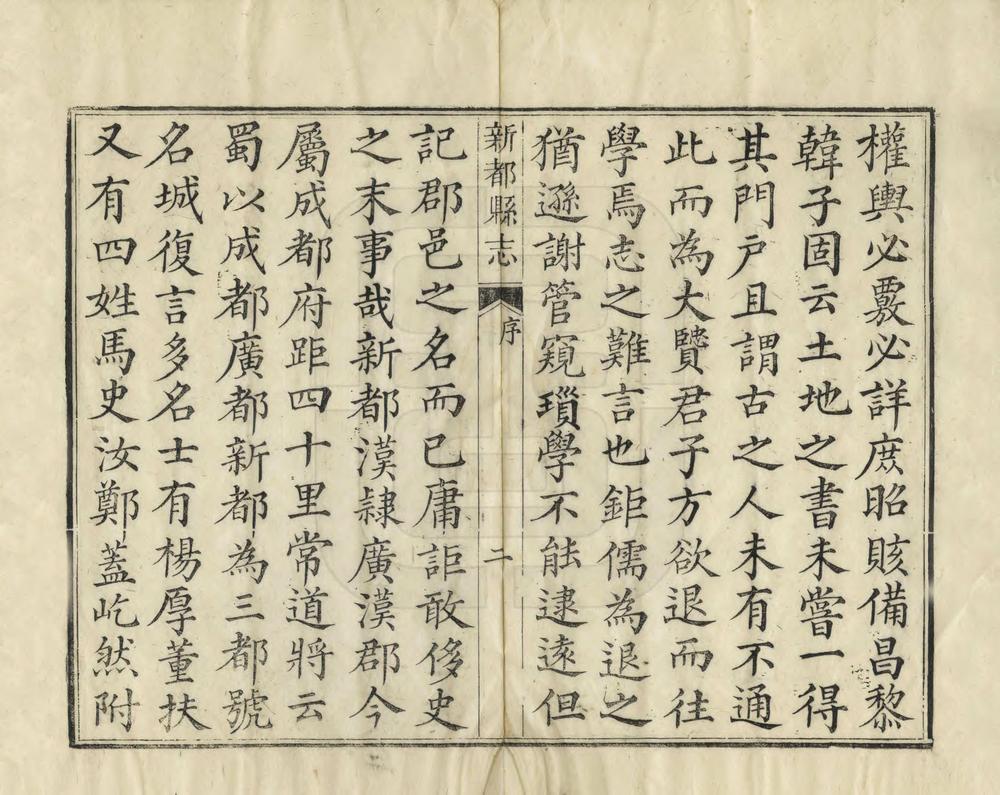 權輿必覈必詳庶昭賅備昌黎
韓子固云土地之書未嘗一得
其門戶且謂古之人未有不通
此而為大贒君子方欲退而往
學焉志之難言也鉅儒為退之
猶遜謝管窺瑣學不能逮遠但
新都縣志 序 二
記郡邑之名而已庸詎敢侈史
之末事哉新都漢隷廣漢郡今
屬成都府距四十里常道將云
蜀以成都廣都新都為三都號
名城復言多名士有楊厚董扶
又有四姓馬史汝鄭蓋屹然附